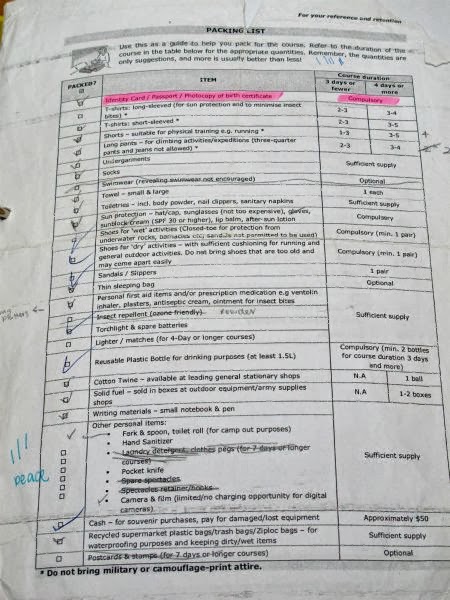 For your reference and retention
PACKING LIST
Use this as a guide to help you pack for the course. Refer to the duration of the
course in the table below for the appropriate quantities. Remember, the quantities are
only suggestions, and more is usually better than less!
PACKED? ITEM Course duration
3 days or fewer 4 days or more
Identity Card / Passport / Photocopy of birth certificate Compulsory
T-shirts: long-sleeved (for sun protection and to minimise insect
bites) * 2-3 3-4
T-shirts: short-sleeved * 2-3 3-5
Shorts – suitable for physical training e.g. running * 1-3 3-5 4
Long pants – for climbing activities/expeditions (three-quarter
pants and jeans not allowed) * 2-3 3-4 2
Undergarments Sufficient supply
Socks
Swimwear (revealing swimwear not encouraged) Optional
Towel – small & large 1 each
Toiletries – incl. body powder, nail clippers, sanitary napkins Sufficient supply
Sun protection – hat/cap, sunglasses (not too expensive), gloves,
sunblock cream (SPF 30 or higher), lip balm, after-sun lotion Compulsory
Shoes for 'wet' activities (Closed-toe for protection from
underwater rocks, barnacles etc, sandals not permitted to be used) Compulsory (min. 1 pair)
Shoes for 'dry' activities – with sufficient cushioning for running and
general outdoor activities. Do not bring shoes that are too old and
may come apart easily Compulsory (min. 1 pair)
Sandals / Slippers 1 pair
Thin sleeping bag Optional
Personal first aid items and/or prescription medication e.g ventolin
inhaler, plasters, antiseptic cream, ointment for insect bites Sufficient supply
Insect repellent (ozone friendly)
Torchlight & spare batteries
Lighter / matches (for 4-Day or longer courses)
Reusable Plastic Bottle for drinking purposes (at least 1.5L) Compulsory (min. 2 bottles
for course duration 3 days
and more)
Cotton Twine – available at leading general stationary shops N.A 1 ball
Solid fuel – sold in boxes at outdoor equipment/army supplies
shops N.A 1-2 boxes
Writing materials – small notebook & pen
Other personal items: Sufficient supply
• Fork & spoon, toilet roll (for camp out purposes)
• Hand Sanitizer
• Laundry detergent, clothes pegs (for 7 days or longer
courses)
• Pocket knife
• Spare spectacles
• Spectacles retainer/hooks
• Camera & film (limited/no charging opportunity for digital
cameras)
Cash – for souvenir purchases, pay for damaged/lost equipment Approximately $50
Recycled supermarket plastic bags/trash bags/Ziploc bags – for
waterproofing purposes and keeping dirty/wet items Sufficient supply
Postcards & stamps (for 7 days or longer courses) Optional
* Do not bring military or camouflage-print attire.